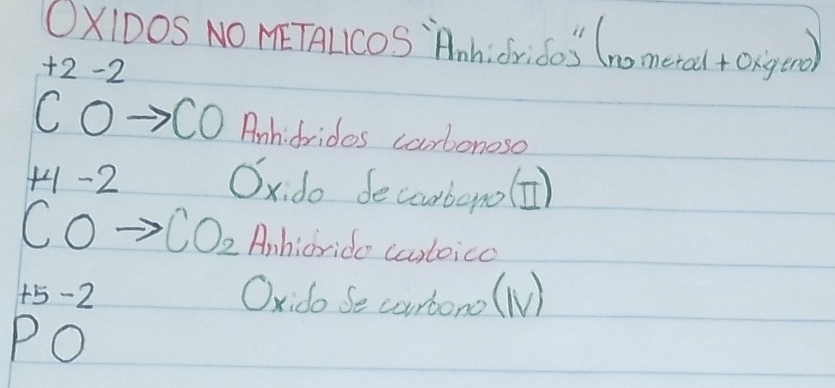 OXIDOS NO METALICOS "Anhidridos" (no metal + Oxigeno)
+2 -2
C O → CO Anhidridos carbonoso
+4 -2 Óxido de carbono (II)
C O → CO2 Anhidrido carboico
+5 -2 Oxido de carbono (IV)
P O